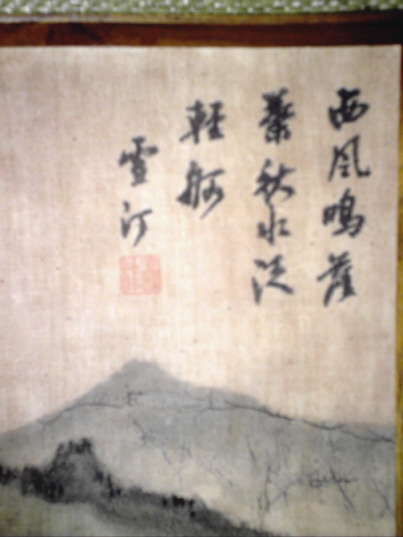 西風鳴落
葉秋水泛
輕舸
雪汀